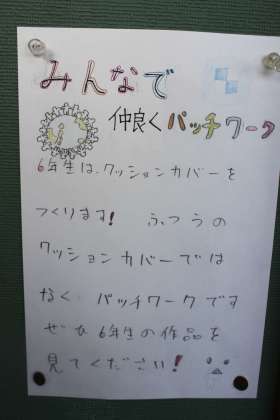 みんなで
仲良くパッチワーク
6年生は、クッションカバーを
つくります!　ふつうの
クッションカバーでは
なく　パッチワークです
ぜひ6年生の作品を
見てください!